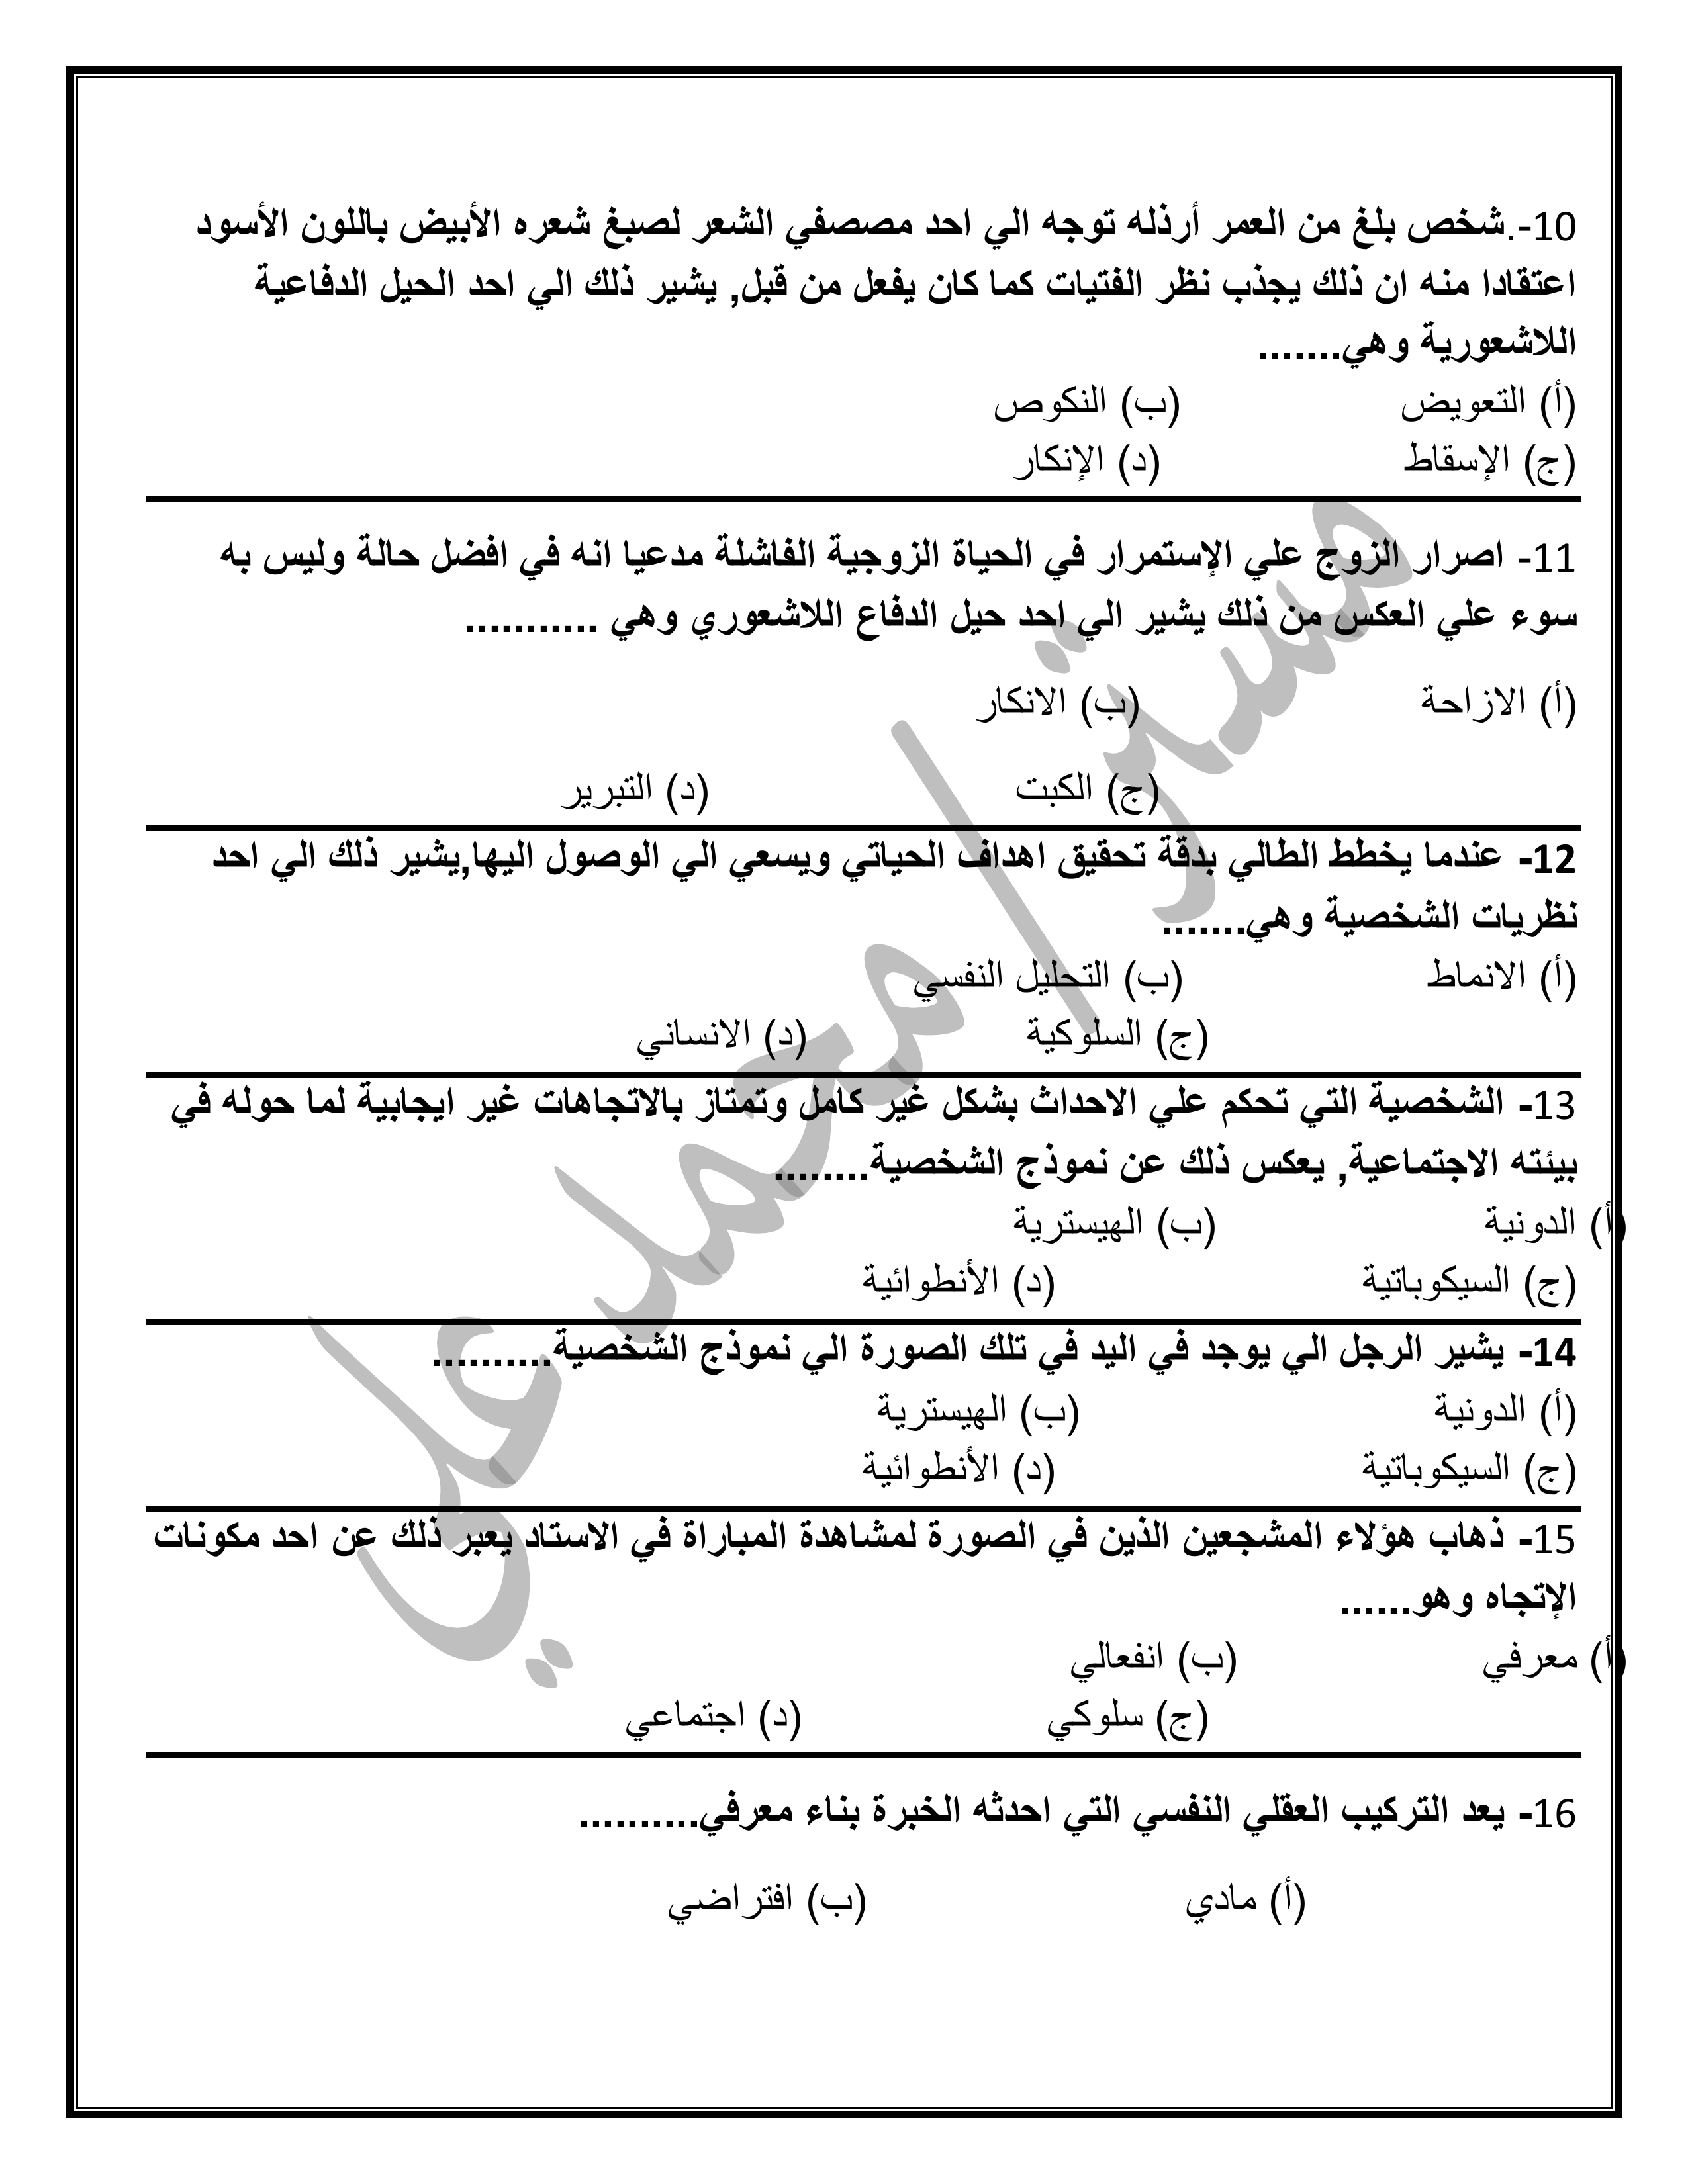 10-.شخص بلغ من العمر أرذله توجه الي احد مصصفي الشعر لصبغ شعره الأبيض باللون الأسود
اعتقادا منه ان ذلك يجذب نظر الفتيات كما كان يفعل من قبل, يشير ذلك الي احد الحيل الدفاعية
اللاشعورية وهي.......
(أ) التعويض (ب) النكوص
(ج) الإسقاط (د) الإنكار
11- اصرار الزوج علي الإستمرار في الحياة الزوجية الفاشلة مدعيا انه في افضل حالة وليس به
سوء علي العكس من ذلك يشير الي احد حيل الدفاع اللاشعوري وهي ...........
(أ) الازاحة (ب) الانكار
(ج) الكبت (د) التبرير
12- عندما يخطط الطالي بدقة تحقيق اهداف الحياتي ويسعي الي الوصول اليها,يشير ذلك الي احد
نظريات الشخصية وهي.......
(أ) الانماط (ب) التحليل النفسي
(ج) السلوكية (د) الانساني
13- الشخصية التي تحكم علي الاحداث بشكل غير كامل وتمتاز بالاتجاهات غير ايجابية لما حوله في
بيئته الاجتماعية, يعكس ذلك عن نموذج الشخصية........
(أ) الدونية (ب) الهيسترية
(ج) السيكوباتية (د) الأنطوائية
14- يشير الرجل الي يوجد في اليد في تلك الصورة الي نموذج الشخصية..........
(أ) الدونية (ب) الهيسترية
(ج) السيكوباتية (د) الأنطوائية
15- ذهاب هؤلاء المشجعين الذين في الصورة لمشاهدة المباراة في الاستاد يعبر ذلك عن احد مكونات
الإتجاه وهو......
(أ) معرفي (ب) انفعالي
(ج) سلوكي (د) اجتماعي
16- يعد التركيب العقلي النفسي التي احدثه الخبرة بناء معرفي..........
(أ) مادي (ب) افتراضي
مستر/ محمد علي